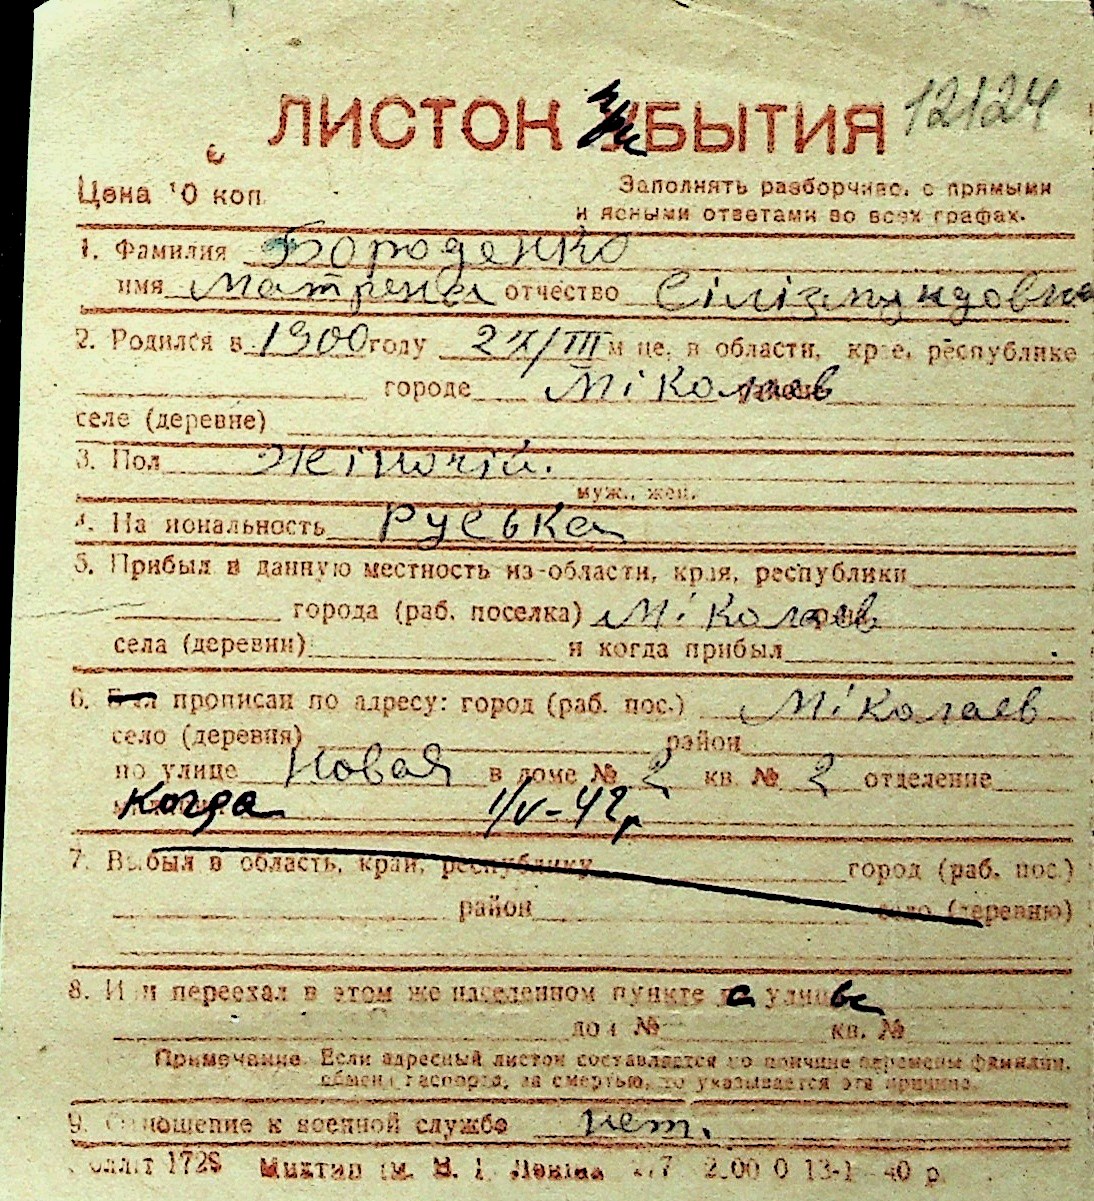 12124
ЛИСТОК ПРИБЫТИЯ
Цена 10 коп.
Заполнять разборчиво, с прямыми
и ясными ответами во всех графах.
1. Фамилия Бороденко
имя Матрена отчество
2. Родился в 1900 году 2 X/III м це, в области, крае, республике
городе Міколаев
селе (деревне)
3. Пол жіночій.
муж., жен.
4. На иональность Руська
5. Прибыл в данную местность из-области, края, республики
города (раб. поселка) Міколаев
села (деревни) и когда прибыл
6. прописан по адресу: город (раб. пос.) Міколаев
село (деревня) район
по улице Новая в доме № 2 кв. № 2 отделение
когда 1/V-42 р
7. Выбыл в область, край, республику город (раб. пос.)
район село (деревню)
8. И и переехал в этом же населенном пункте с улицы
до № кв. №
Примечание. Если адресный листок составляется по причине перемены фамилии,
обмена паспорта, за смертью, то указывается эта причина.
9. Отношение к военной службе нет.
1728 им. В. И. Ленина 2.00 0 13-1 40 р.